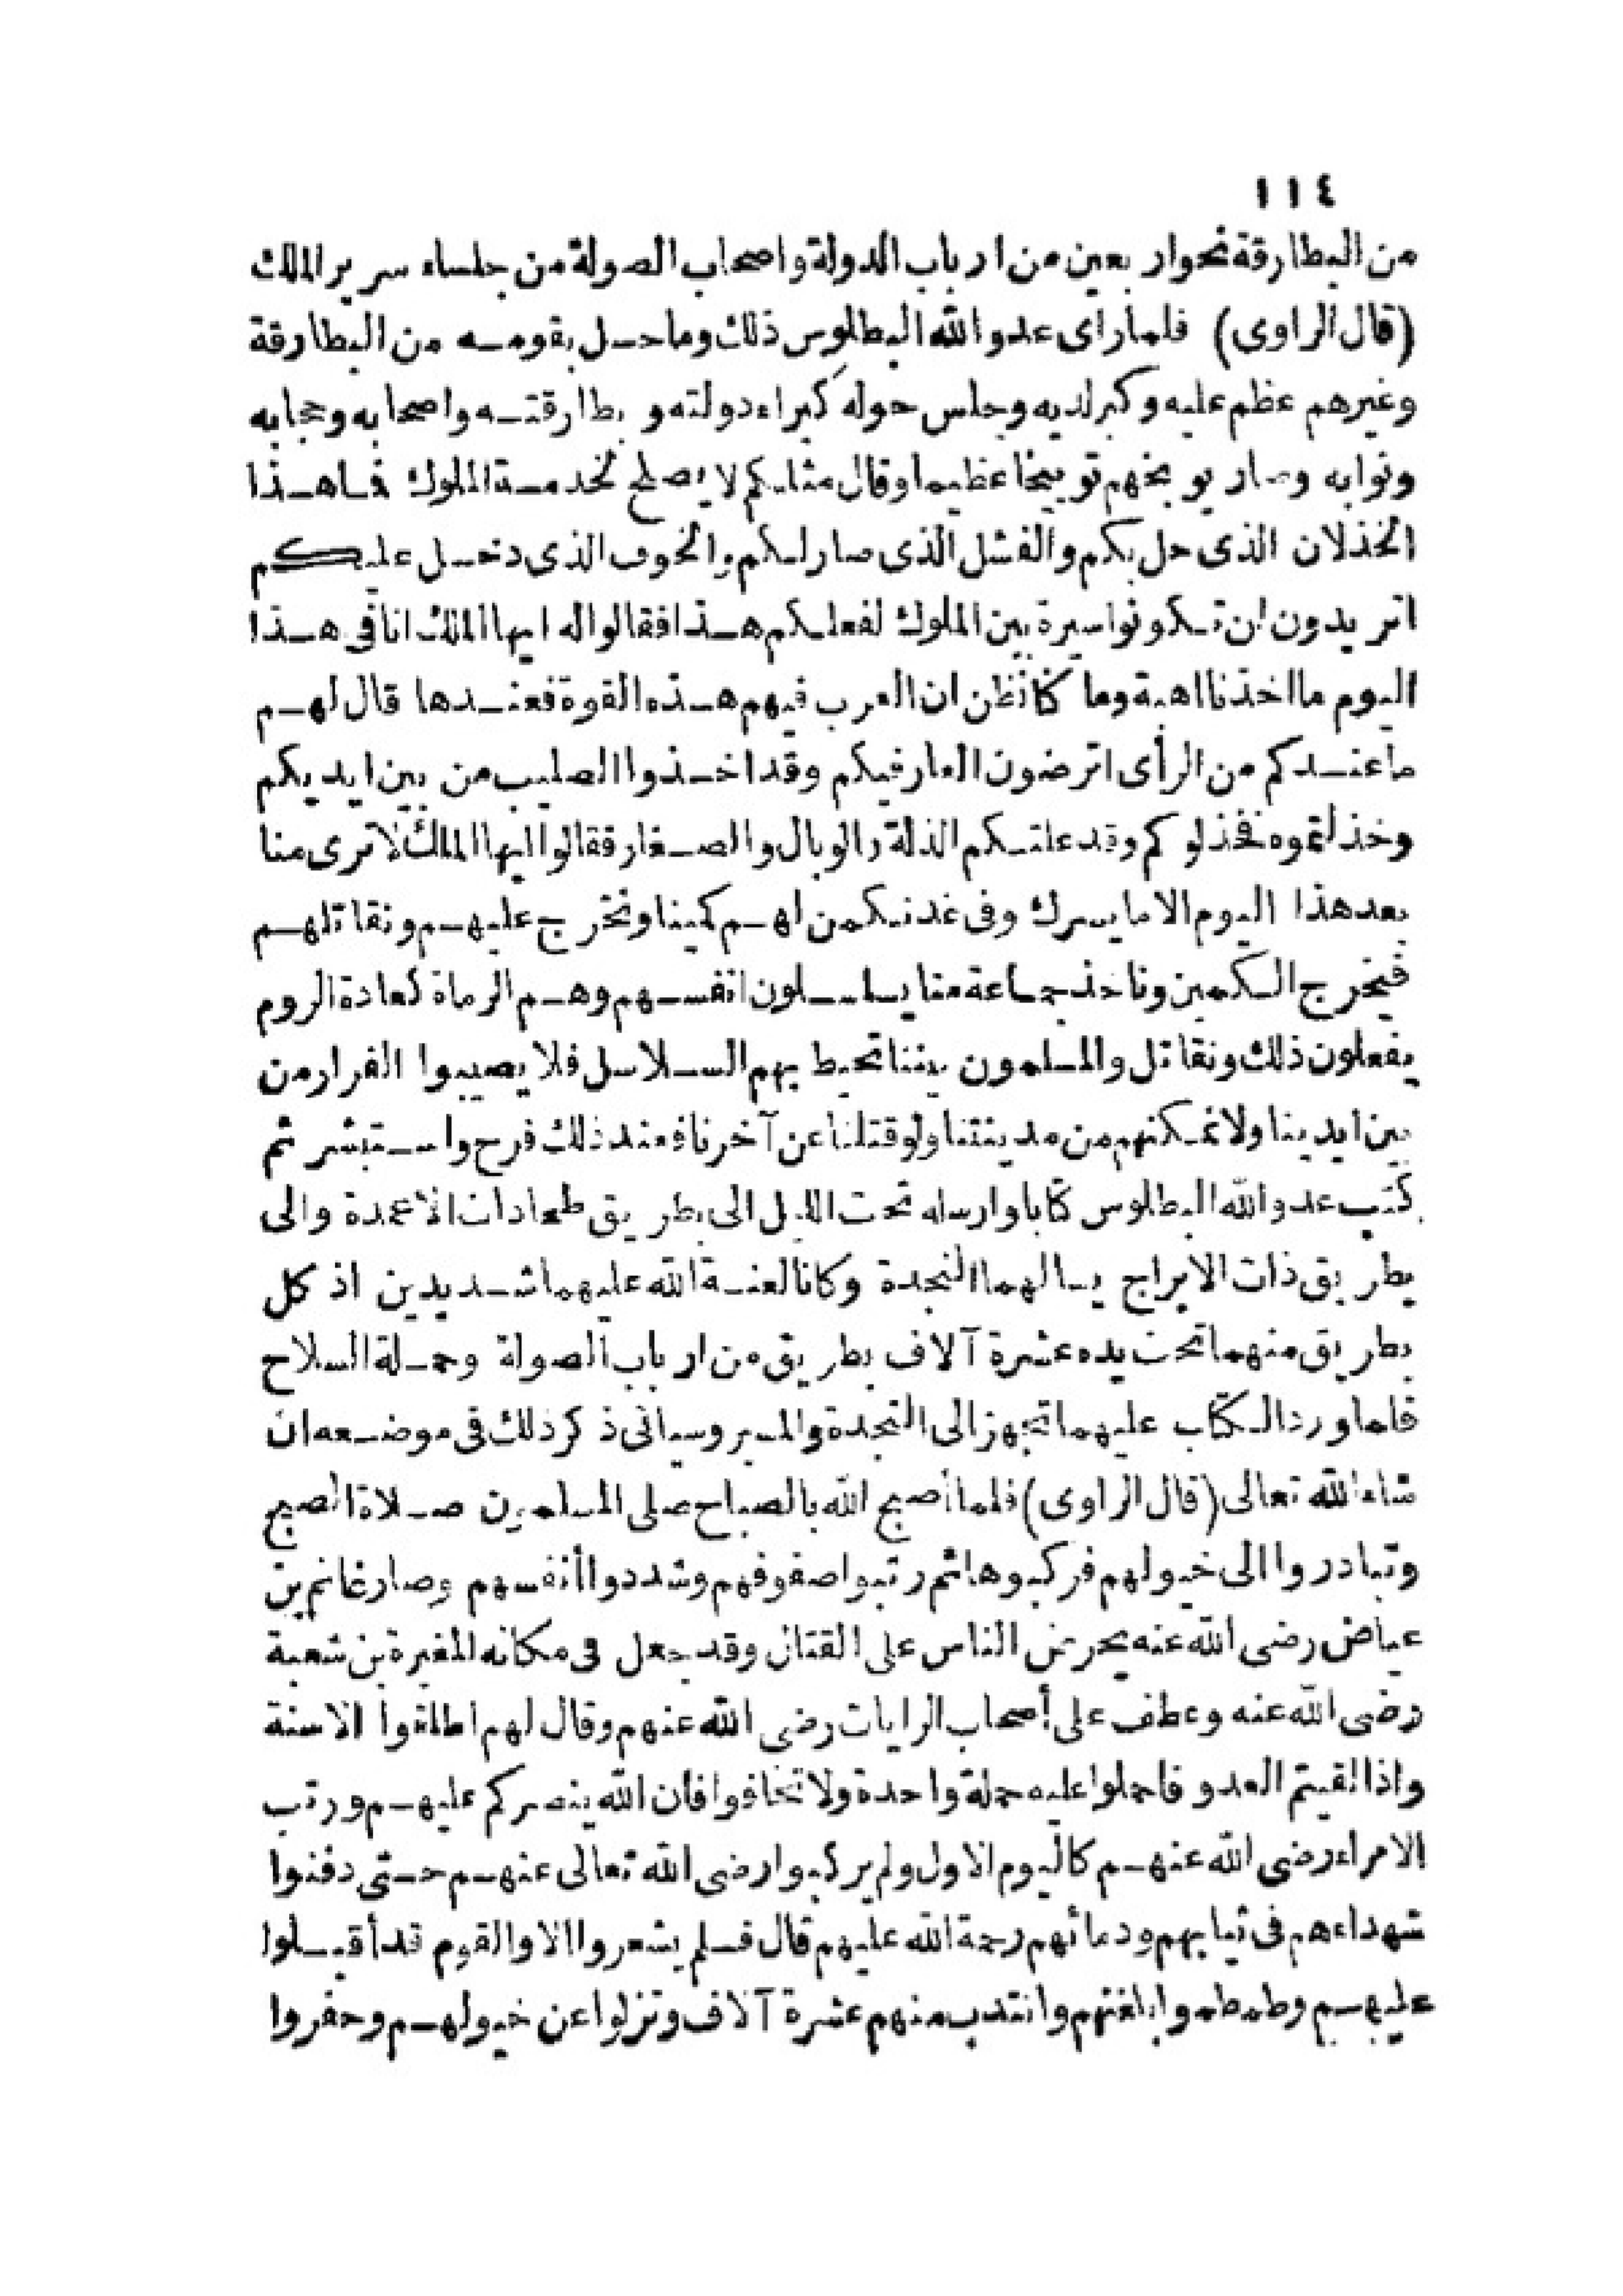 ١١٤
من البطارقة نحو اربعين من ارباب الدولة واصحاب الصولة من جلساء سرير الملك
(قال الراوى) فلما راى عدو الله البطلوس ذلك وما حل بقومه من البطارقة
وغيرهم عظم عليه وكبر لديه وجلس حوله كبراء دولته و بطارقته واصحابه وحجابه
ونوابه وصار يوبخهم توبيخا عظيما وقال مثلكم لا يصلح لخدمة الملوك فما هذا
الخذلان الذى حل بكم والفشل الذى صار لكم والخوف الذى دخل عليكم
اتريدون ان تكونوا سيرة بين الملوك لفعلكم هذا فقالوا له ايها الملك انا فى هذا
اليوم ما اخذنا اهبة وما كنا نظن ان العرب فيهم هذه القوة فعندها قال لهم
ما عندكم من الرأى اترضون العار فيكم وقد اخذوا الصليب من بين ايديكم
وخذلتموه فخذلوكم وقد علتكم الذلة والوبال والصغار فقالوا ايها الملك لا ترى منا
بعد هذا اليوم الا ما يسرك وفى غد نكمن لهم كمينا ونخرج عليهم ونقاتلهم
فيخرج الكمين وناخذ جماعة منا يسلسلون انفسهم وهم الرماة كعادة الروم
يفعلون ذلك ونقاتل والمسلمون بيننا تحيط بهم السلاسل فلا يصيبوا الفرار من
بين ايدينا ولا نمكنهم من مدينتنا ولو قتلنا عن آخرنا فعند ذلك فرح واستبشر ثم
كتب عدو الله البطلوس كتابا وارسله تحت الليل الى بطريق طحا ذات الاعمدة والى
بطريق ذات الابراج يسالهما النجدة وكانا لعنة الله عليهما شديدين اذ كل
بطريق منهما تحت يده عشرة آلاف بطريق من ارباب الصولة وحملة السلاح
فلما ورد الكتاب عليهما تجهز الى النجدة والمسير وسياتى ذكر ذلك فى موضعه ان
شاء الله تعالى (قال الراوى) فلما أصبح الله بالصباح صلى المسلمون صلاة الصبح
وتبادروا الى خيولهم فركبوها ثم رتبوا صفوفهم وشددوا أنفسهم وصار غانم بن
عياض رضى الله عنه يحرض الناس على القتال وقد جعل فى مكانه المغيرة بن شعبة
رضى الله عنه وعطف على أصحاب الرايات رضى الله عنهم وقال لهم اطلقوا الاسنة
واذا لقيتم العدو فاحملوا عليه حملة واحدة ولا تخافوا فان الله ينصركم عليهم ورتب
الامراء رضى الله عنهم كاليوم الاول ولم يركبوا رضى الله تعالى عنهم حتى دفنوا
شهداءهم فى ثيابهم ودمائهم رحمة الله عليهم قال فلم يشعروا الا والقوم قد أقبلوا
عليهم وطمطموا بلغتهم وانتدب منهم عشرة آلاف ونزلوا عن خيولهم وحفروا